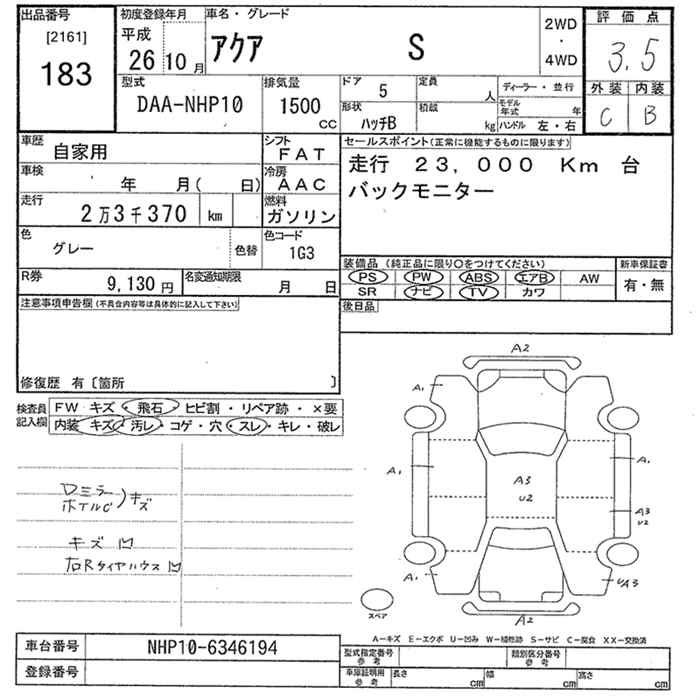 出品番号 初度登録年月 車名・グレード 2WD ・ 4WD 評価点
[2161] 平成 アクア S 3.5
183 26年10月 外装 内装
型式 排気量 ドア 定員 ディーラー・並行 C B
DAA-NHP10 1500 CC 5 人 モデル年式 年
形状 積載 ハンドル 左・右
ハッチB kg
車歴 シフト セールスポイント(正常に機能するものに限ります)
自家用 FAT 走行 23,000 Km 台
車検 冷房 バックモニター
年 月( 日) AAC
走行 燃料
2万3千370 km ガソリン
色 色替 色コード
グレー 1G3
装備品(純正品に限り○をつけてください) 新車保証書
R券 名変通知期限 PS PW ABS エアB AW 有・無
9,130円 月 日 SR ナビ TV カワ
注意事項申告欄(不具合内容等は具体的に記入して下さい) 後日品
修復歴 有〔箇所 〕
検査員記入欄 FW キズ・飛石・ヒビ割・リペア跡・×要
内装 キズ・汚レ・コゲ・穴・スレ・キレ・破レ
A2
A1
A1 A1
A3 U2
A3 U2
A1 UA3
A2
Dミラー
ホイルC キズ
キズ 凹
右Rタイヤハウス凹
スペア
A-キズ E-エクボ U-凹み W-補修跡 S-サビ C-腐食 XX-交換済
車台番号 NHP10-6346194 型式指定番号 参考 類別区分番号 参考
登録番号 車庫証明用 参考 長さ cm 幅 cm 高さ cm